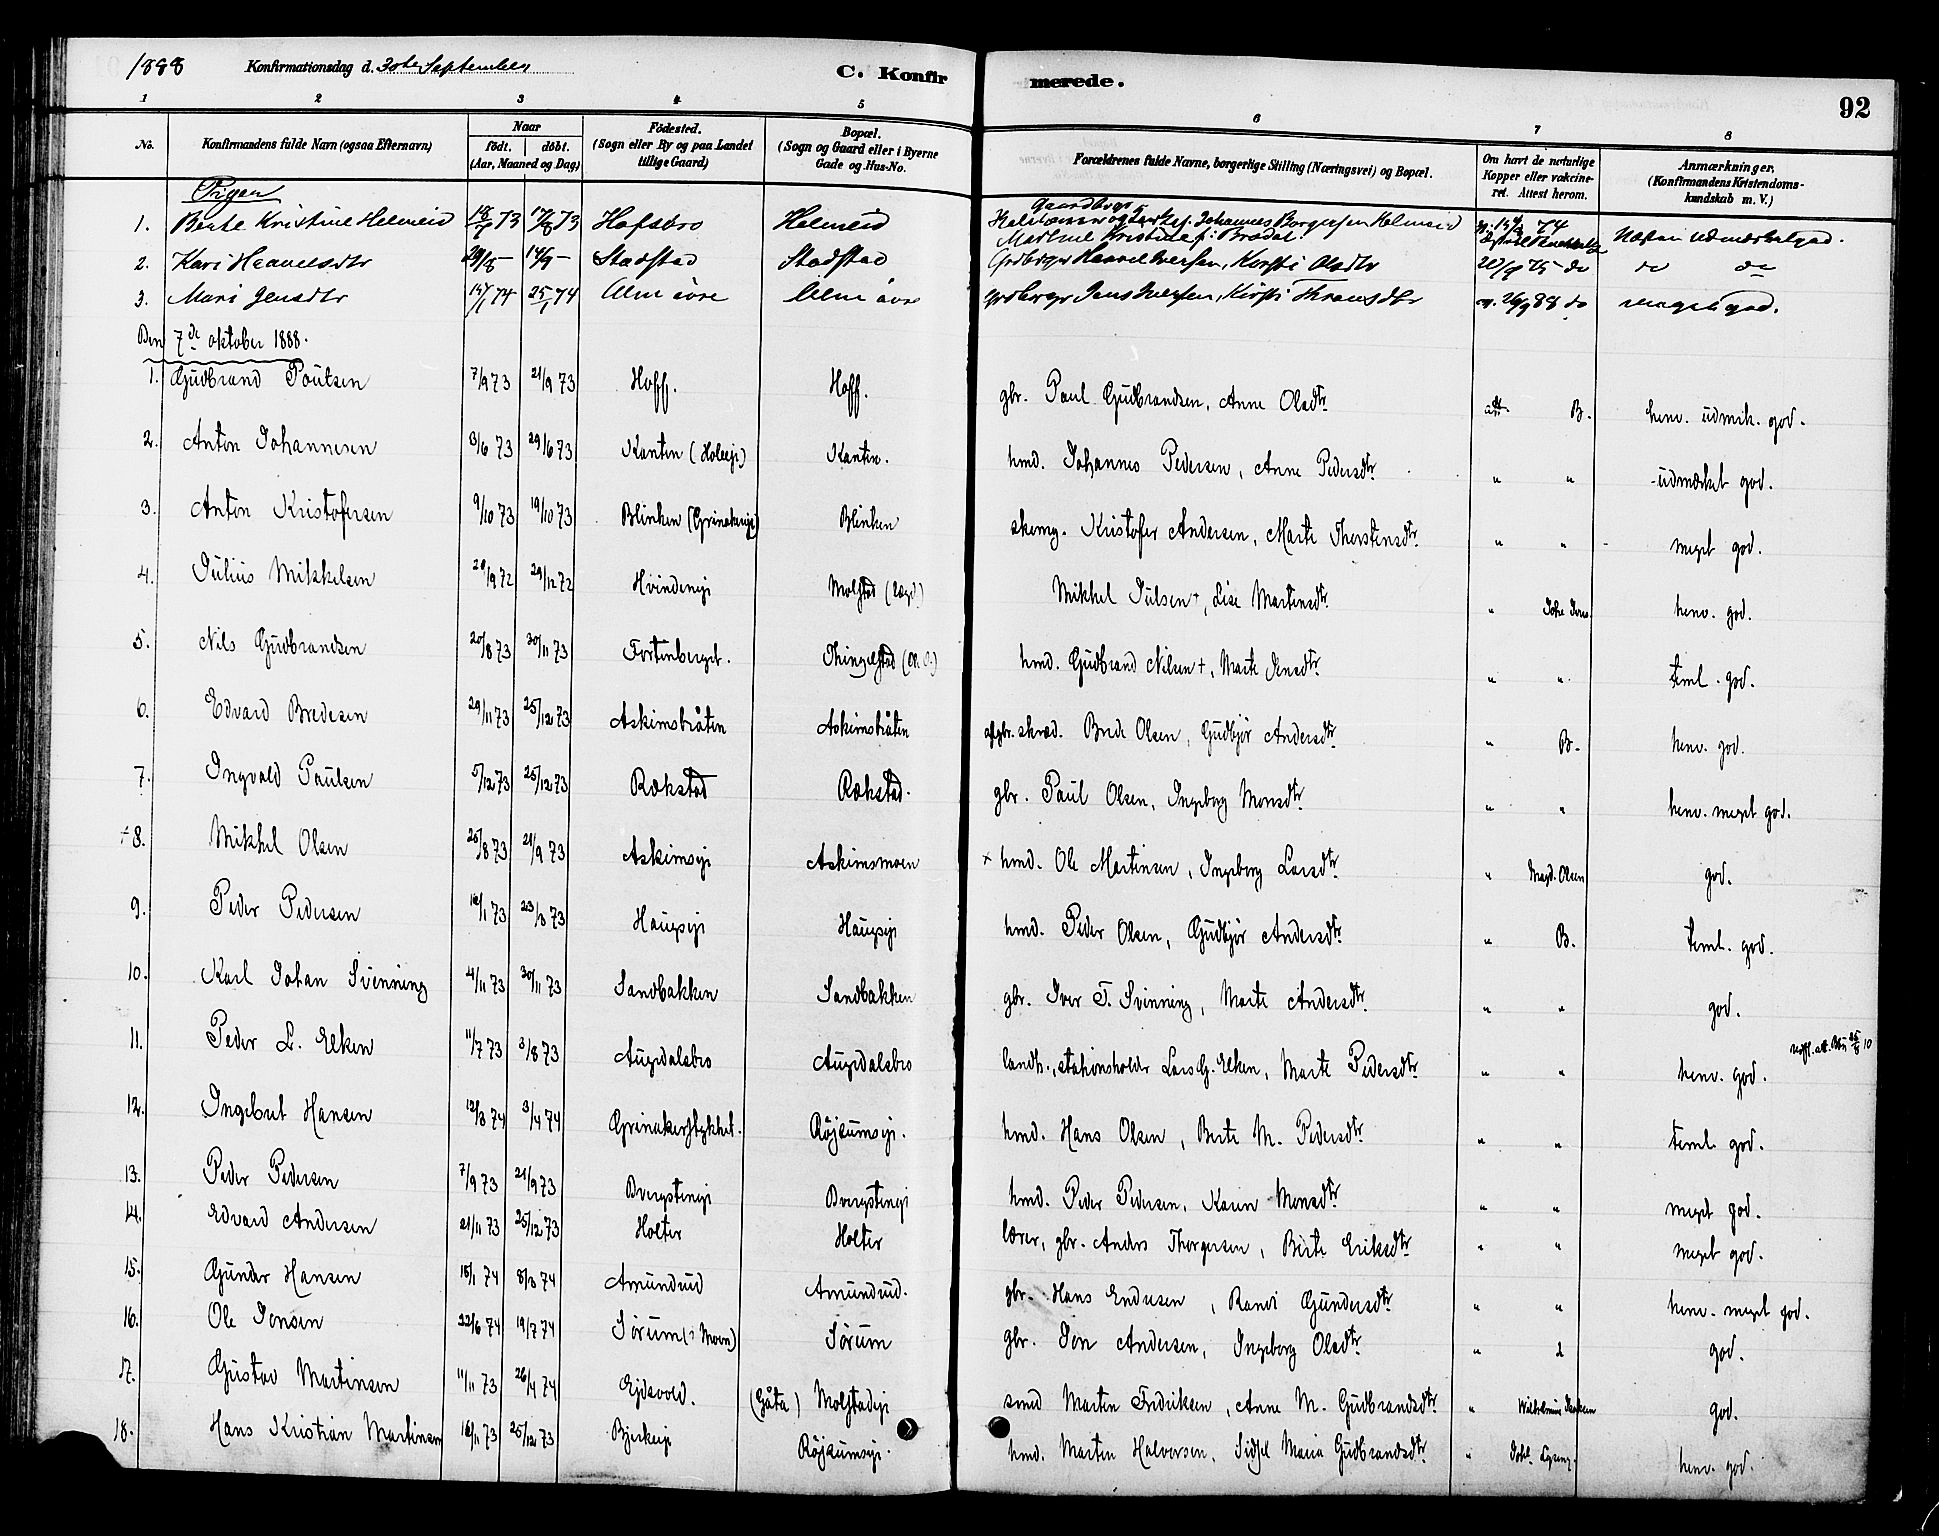 1888 Konfirmationsdag d. 30te September C. Konfirmerede. 92
1 2 3 4 5 6 7 8
No. Konfirmandens fulde Navn (ogsaa Efternavn) Naar født. døbt. (Aar, Maaned og Dag) Födested. (Sogn eller By og paa Landet tillige Gaard) Bopæl. (Sogn og Gaard eller i Byerne Gade og Hus-No. Forældrenes fulde Navne, borgerlige Stilling (Næringsvei) og Bopæl. Om havt de naturlige Kopper eller vakcineret. Attest herom. Anmærkninger, (Konfirmandens Kristendomskundskab m. V.)
Piger
1. Berte Kristine Helmeid 73 17/8 73 Hofsbro Helmeid Gaardbrgr Johannes Borgersen Helmeid 74
Mathea Kristine f. Brodal næsten udmærketgod.
2. Kari Haavelsdtr 29/8 – 14/9 – Stadstad Stadstad Grdbrgr Haavel Iversen, Kersti Olsdtr 75 do do do
3. Mari Jensdtr 74 25/1 74 Alm övre Alm övre Grdbrgr Jens Iversen, Kirsti 26/9 88 do meget god.
Den 7de oktober 1888.
1. Gudbrand Poulsen 7/9 73 21/9 73 Hoff. Hoff. gbr. Paul Gudbrandsen, Anne Olsdtr att. B. henv. udmrk. god.
2. Anton Johannesen 3/6 73 29/6 73 Kanten (Holeeje) Kanten. hmd. Johannes Pedersen, Anne Pedersdtr " " udmærket god.
3. Anton Kristofersen 9/10 73 19/10 73 Blinken (Grinakereje) Blinken skomg. Kristofer Andersen, Marte Thorstensdtr " " meget god.
4. Julius Mikkelsen 20/9 72 29/12 72 Hvindeneje Molstad (Lægd.) Mikkel Julsen +, Lise Martinsdtr " henv. god.
5. Nils Gudbrandsen 20/8 73 30/11 73 Fortenberget. Thingelstad hmd. Gudbrand Nilsen +, Marte Jensdtr " " teml. god.
6. Edvard Bredesen 29/11 73 25/12 73 Askimsbråten Askimsbråten skræd. Brede Olsen, Gudbjør Andersdtr " B. henv. god.
7. Ingvald Paulsen 5/12 73 25/12 73 Rækstad Rækstad. gbr. Paul Olsen, Ingeborg Monsdtr " " henv. meget god.
+ 8. Mikkel Olsen 25/8 73 21/9 73 Askimseje Askimsmoen × hmd. Ole Martinsen, Ingeborg Larsdtr " Magd. Olsen god.
9. Peder Pedersen 73 23/3 73 Haugseje Haugseje hmd. Peder Olsen, Gudbjør Andersdtr " B. teml. god.
10. Karl Johan Svinning 4/11 73 30/11 73 Sandbakken Sandbakken gbr. Iver T. Svinning, Marte Andersdtr " " god.
11. Peder L. Elken 11/7 73 3/8 73 Augedalsbro Augedalsbro landh., stationsholder Lars G. Elken, Marte Pedersdtr " " henv. god. 25/8 10
12. Ingebret Hansen 12/3 74 3/4 74 Grinakerstykket. Røjsumseje. hmd. Hans Olsen, Berte M. Pedersdtr " " teml. god.
13. Peder Pedersen 7/9 73 21/9 73 Dvergsteneje Dvergsteneje hmd. Peder Pedersen, Karen Monsdtr " " meget god.
14. Edvard Andersen 21/11 73 25/12 73 Holter Holter lærer, gbr. Anders Thorgersen, Berte Eriksdtr " " meget god.
15. Gunder Hansen 15/1 74 8/3 74 Amundrud Amundrud. gbr. Hans Endresen, Randi Gundersdtr " " henv. meget god.
16. Ole Jonsen 22/6 74 19/7 74 Sørum (? Moen) Sørum gbr. Jon Andersen, Ingeborg Olsdtr " god.
17. Gustav Martinsen 11/11 73 26/4 74 Ejdsvold. (Gåta) Molstadeje smed Martin Fredriksen, Anne M. Gudbrandsdtr " god.
18. Hans Kristian Martinsen 16/11 73 25/12 73 Bjerkeeje Røjsumseje. hmd. Martin Halvorsen, Sidsel Maria Gudbrandsdtr " henv. god.